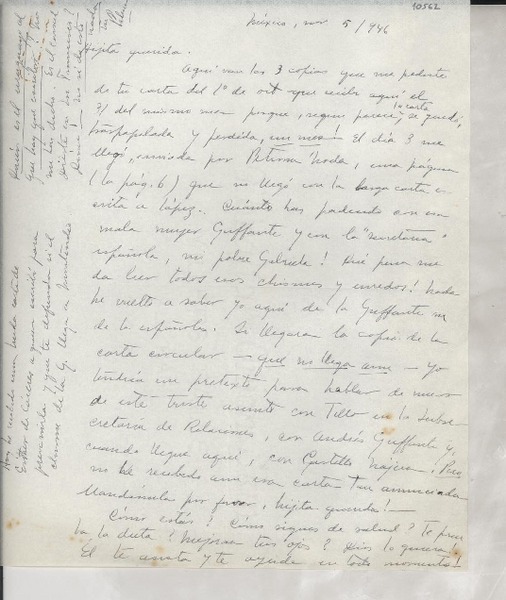 10562
México, nov 5/946
Hijita querida.
Aquí van las 3 copias que me pediste
de tu carta del 1º de oct que recibí aquí el
31 del mismo mes porque, según parece, la carta se quedó,
traspapelada y perdida, un mes! El día 3 me
llegó, enviada por Petrona Unda, una página
(la pág. 6) que no llegó con la larga carta es
crita a López. Cuánto has padecido con esa
mala mujer Guffante y con la "secretaria"
española, mi pobre Gabriela! Qué pena me
da leer todos esos chismes y enredos! Nada
he vuelto a saber yo aquí de la Guffante ni
de la española. Si llegara la copia de la
carta circular — que no llega aun — yo
tendría un pretexto para hablar de nuevo
de este triste asunto con Tello en la Subse
cretaría de Relaciones, con Andrés Guffante y,
cuando llegue aquí, con Castillo Nájera. Pero
no he recibido aun esa carta tan anunciada
Mandámela por favor, hijita querida! —
Cómo estás? Cómo sigues de salud? Te prue
ba la dieta? Mejoran tus ojos? Dios lo quiera!
Él te asista y te ayude en todo momento!
Hoy he recibido una linda carta de
Esther de Cáceres a quien escribí para
prevenirla y que te defienda si el
chisme de la G. llega a Montevideo